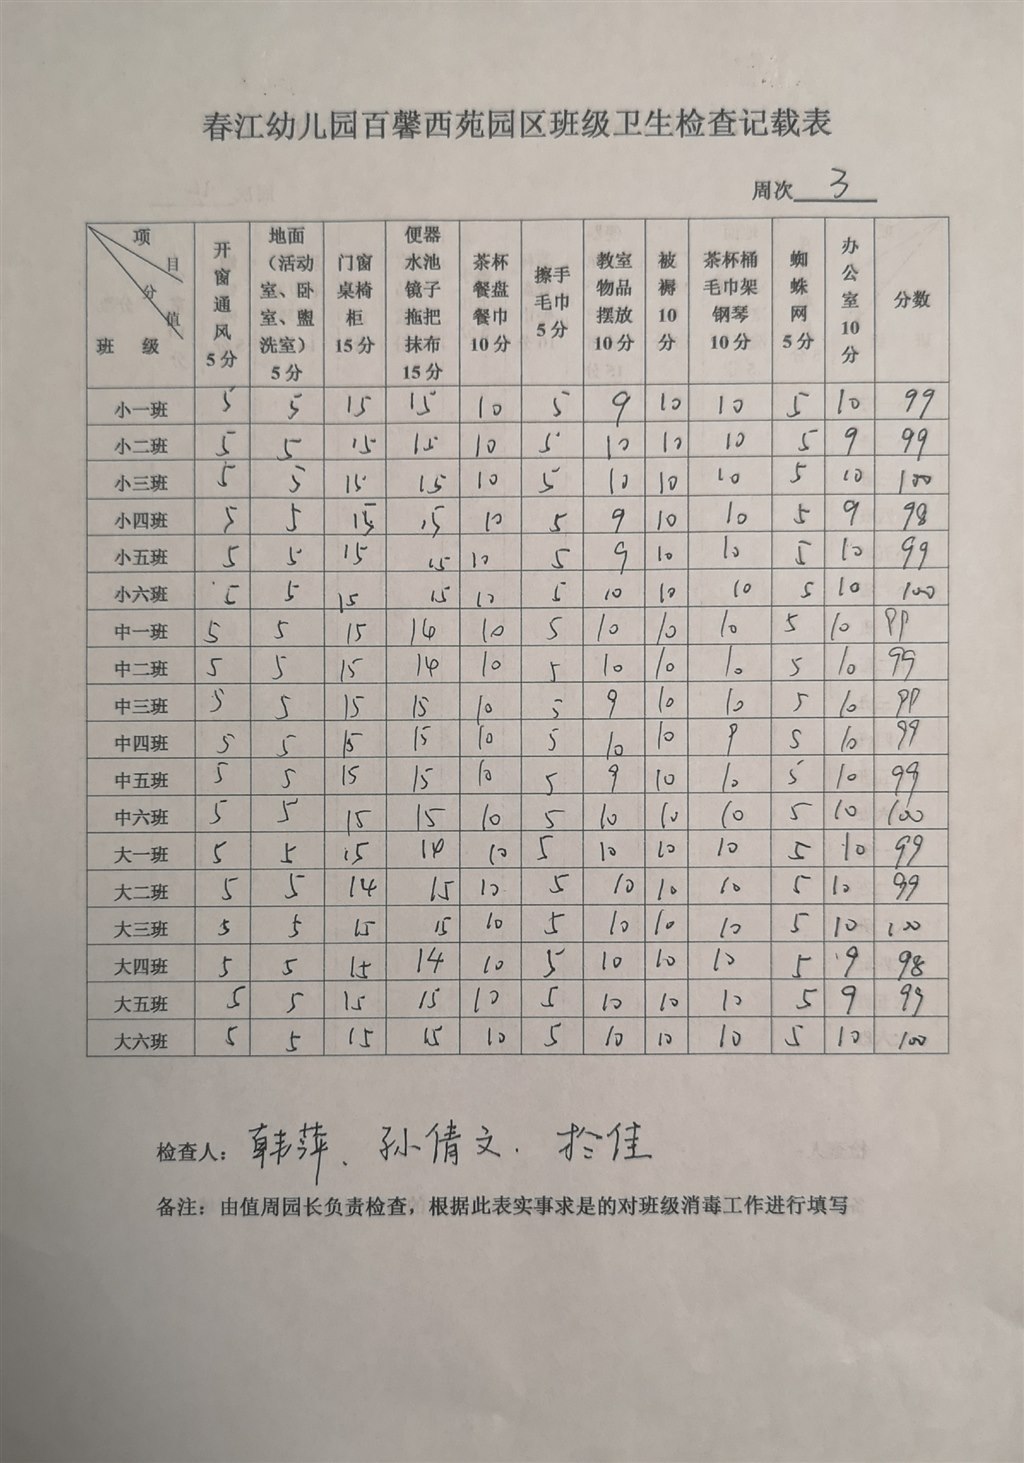 春江幼儿园百馨西苑园区班级卫生检查记载表
周次 3
项目 分值 班级 开窗通风5分 地面（活动室、卧室、盥洗室）5分 门窗桌椅柜15分 便器水池镜子拖把抹布15分 茶杯餐盘餐巾10分 擦手毛巾5分 教室物品摆放10分 被褥10分 茶杯桶毛巾架钢琴10分 蜘蛛网5分 办公室10分 分数
小一班 5 5 15 15 10 5 9 10 10 5 10 99
小二班 5 5 15 15 10 5 10 10 10 5 9 99
小三班 5 5 15 15 10 5 10 10 10 5 10 100
小四班 5 5 15 15 10 5 9 10 10 5 9 98
小五班 5 5 15 15 10 5 9 10 10 5 10 99
小六班 5 5 15 15 10 5 10 10 10 5 10 100
中一班 5 5 15 14 10 5 10 10 10 5 10 99
中二班 5 5 15 14 10 5 10 10 10 5 10 99
中三班 5 5 15 15 10 5 9 10 10 5 10 99
中四班 5 5 15 15 10 5 10 10 9 5 10 99
中五班 5 5 15 15 10 5 9 10 10 5 10 99
中六班 5 5 15 15 10 5 10 10 10 5 10 100
大一班 5 5 15 14 10 5 10 10 10 5 10 99
大二班 5 5 14 15 10 5 10 10 10 5 10 99
大三班 5 5 15 15 10 5 10 10 10 5 10 100
大四班 5 5 15 14 10 5 10 10 10 5 9 98
大五班 5 5 15 15 10 5 10 10 10 5 9 99
大六班 5 5 15 15 10 5 10 10 10 5 10 100
检查人：韩萍、孙倩文、於佳
备注：由值周园长负责检查，根据此表实事求是的对班级消毒工作进行填写